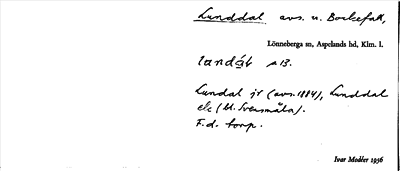 Lunddal avs. u. Boksefall,
Lönneberga sn, Aspelands hd, Klm. l.
Lundal jr (avs. 1884), Lunddal
ek (bl. Svensmåla).
F.d. torp.
Ivar Modéer 1936